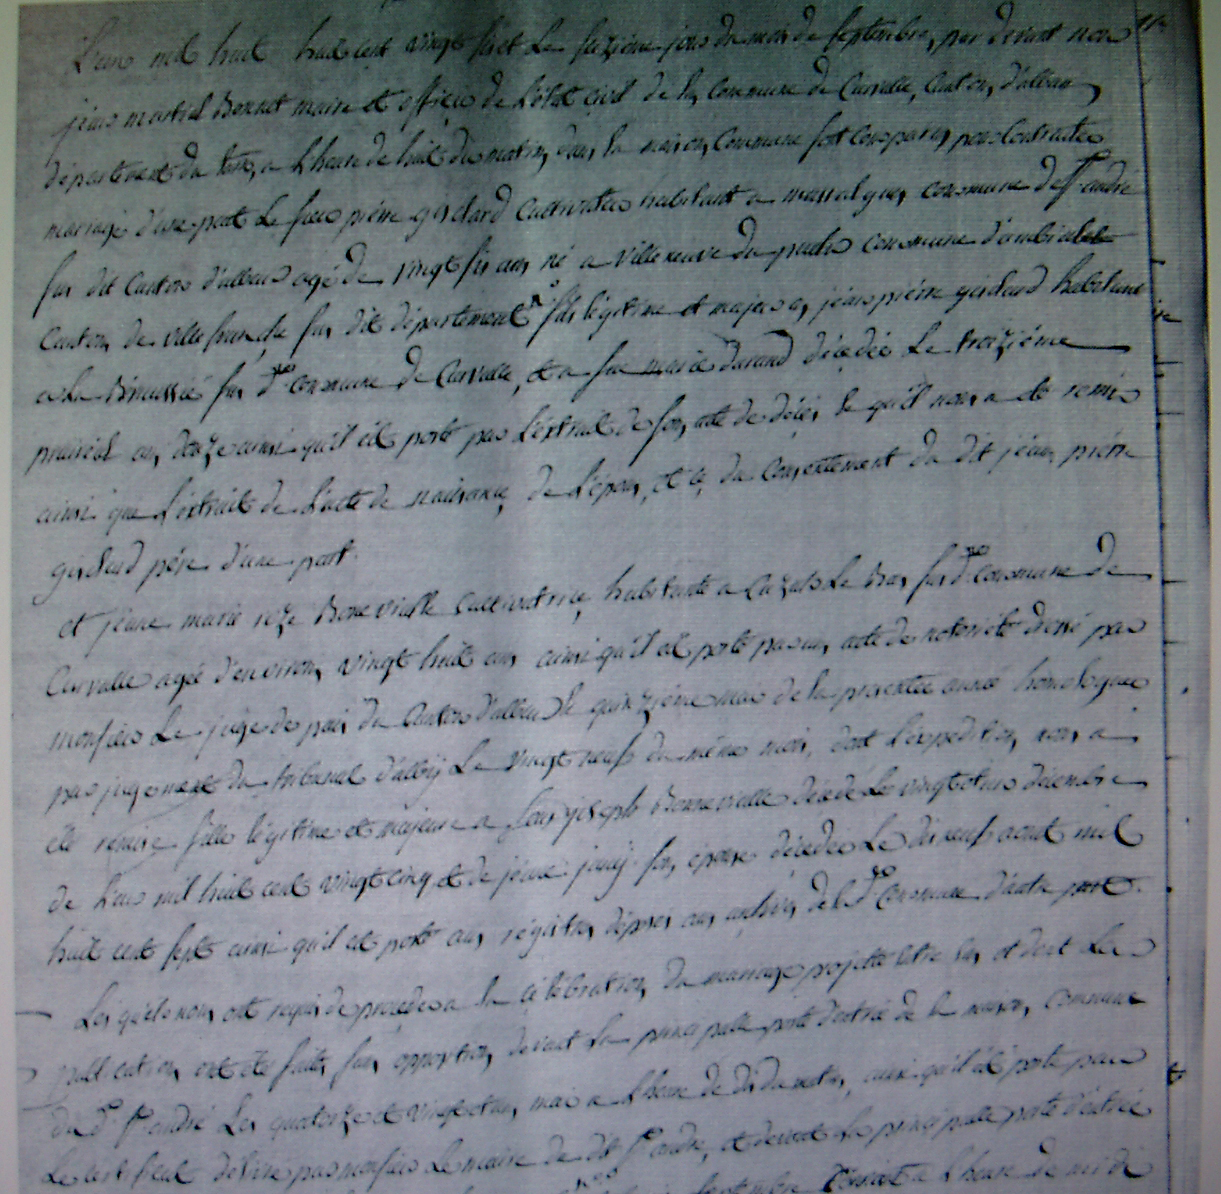 L'an mil huit huit cent vingt sept Le seizieme jour du mois de septembre, par devant nous
jean martial Bonnet maire et officier de l'état civil de la Commune de Curvalle, Canton, d'alban
département du tarn, a L'heure de huit du matin, dans la maison, Commune sont comparus pour Contracter
mariage d'une part Le sieur pierre girlard Cultivateur habitant a massalgues commune de St andré
sus dit Canton d'alban agé de vingt six ans né a villeneuve du commune d'ambialet
Canton, de villefranche sus dit département fils légitime et majeur a, jean pierre girlard habitant
a La sus de commune de Curvalle, et a feu marie durand décédée Le treizième
prairial an, douze ainsi qu'il est porté par L'extrait de son, acte de décés le quil nous a été remis
ainsi que L'extrait de L'acte de naissance, de L'époux, et ce du Consentement du dit jean, pierre
girlard père d'une part.
et jeanne marie roze Bonneviale Cultivatrice, habitante a Cazals Le Bas sus de commune de
Curvalle agée d'environ, vingt huit ans ainsi qu'il est porté par un, acte de notoriété dressé par
monsieur Le juge de paix du Canton d'alban le quinzieme mai de la presente année homologuée
par jugement du tribunal d'alby Le vingt neuf du même mois, dont L'expedition, nous a
été remise fille légitime et majeure a joseph Bonneviale décédé Le vingt décembre
de L'an mil huit cent vingt cinq et de jeanne son, épouse décédée Le dix neuf aout mil
huit cent sept ainsi qu'il est porté aux régistres, déposés aux archives de la de Commune d'autre part.
Lesquels nous ont requis de procéder a la célébration, du mariage projetté entre eux, et dont Les
publications, ont été faites sans opposition, devant La principalle porte d'entrée de la maison, Commune
du dt St andré Les quatorze et vingt mai a L'heure de dix du matin, ainsi qu'il est porté par
Le certificat délivré par monsieur Le maire de dit St andré, et devant La principalle porte d'entrée
septembre a L'heure de midi